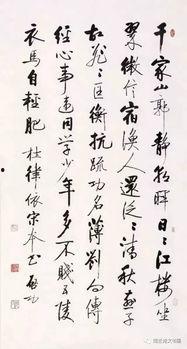 千家山郭靜朝暉日〻江樓坐
翠微信宿漁人還泛〻清秋燕子
故飛〻匡衡抗疏功名薄劉向傳
經心事違同學少年多不賤五陵
衣馬自輕肥 杜律依宋本 啟功